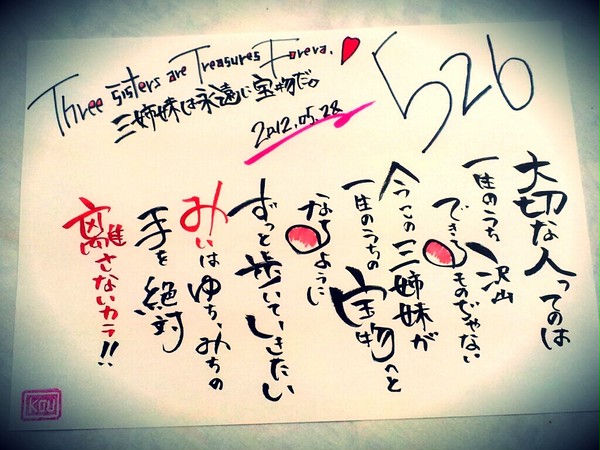 Three sisters are Treasures Foreva.
三姉妹は永遠に宝物だよ。
2012.05.28
526
大切な人ってのは
一生のうち沢山
できるものぢゃない
今この三姉妹が
一生のうちの宝物へと
なるように
ずっと歩いていきたい
みいはゆち、みちの
手を絶対
離さないカラ!!
KOU